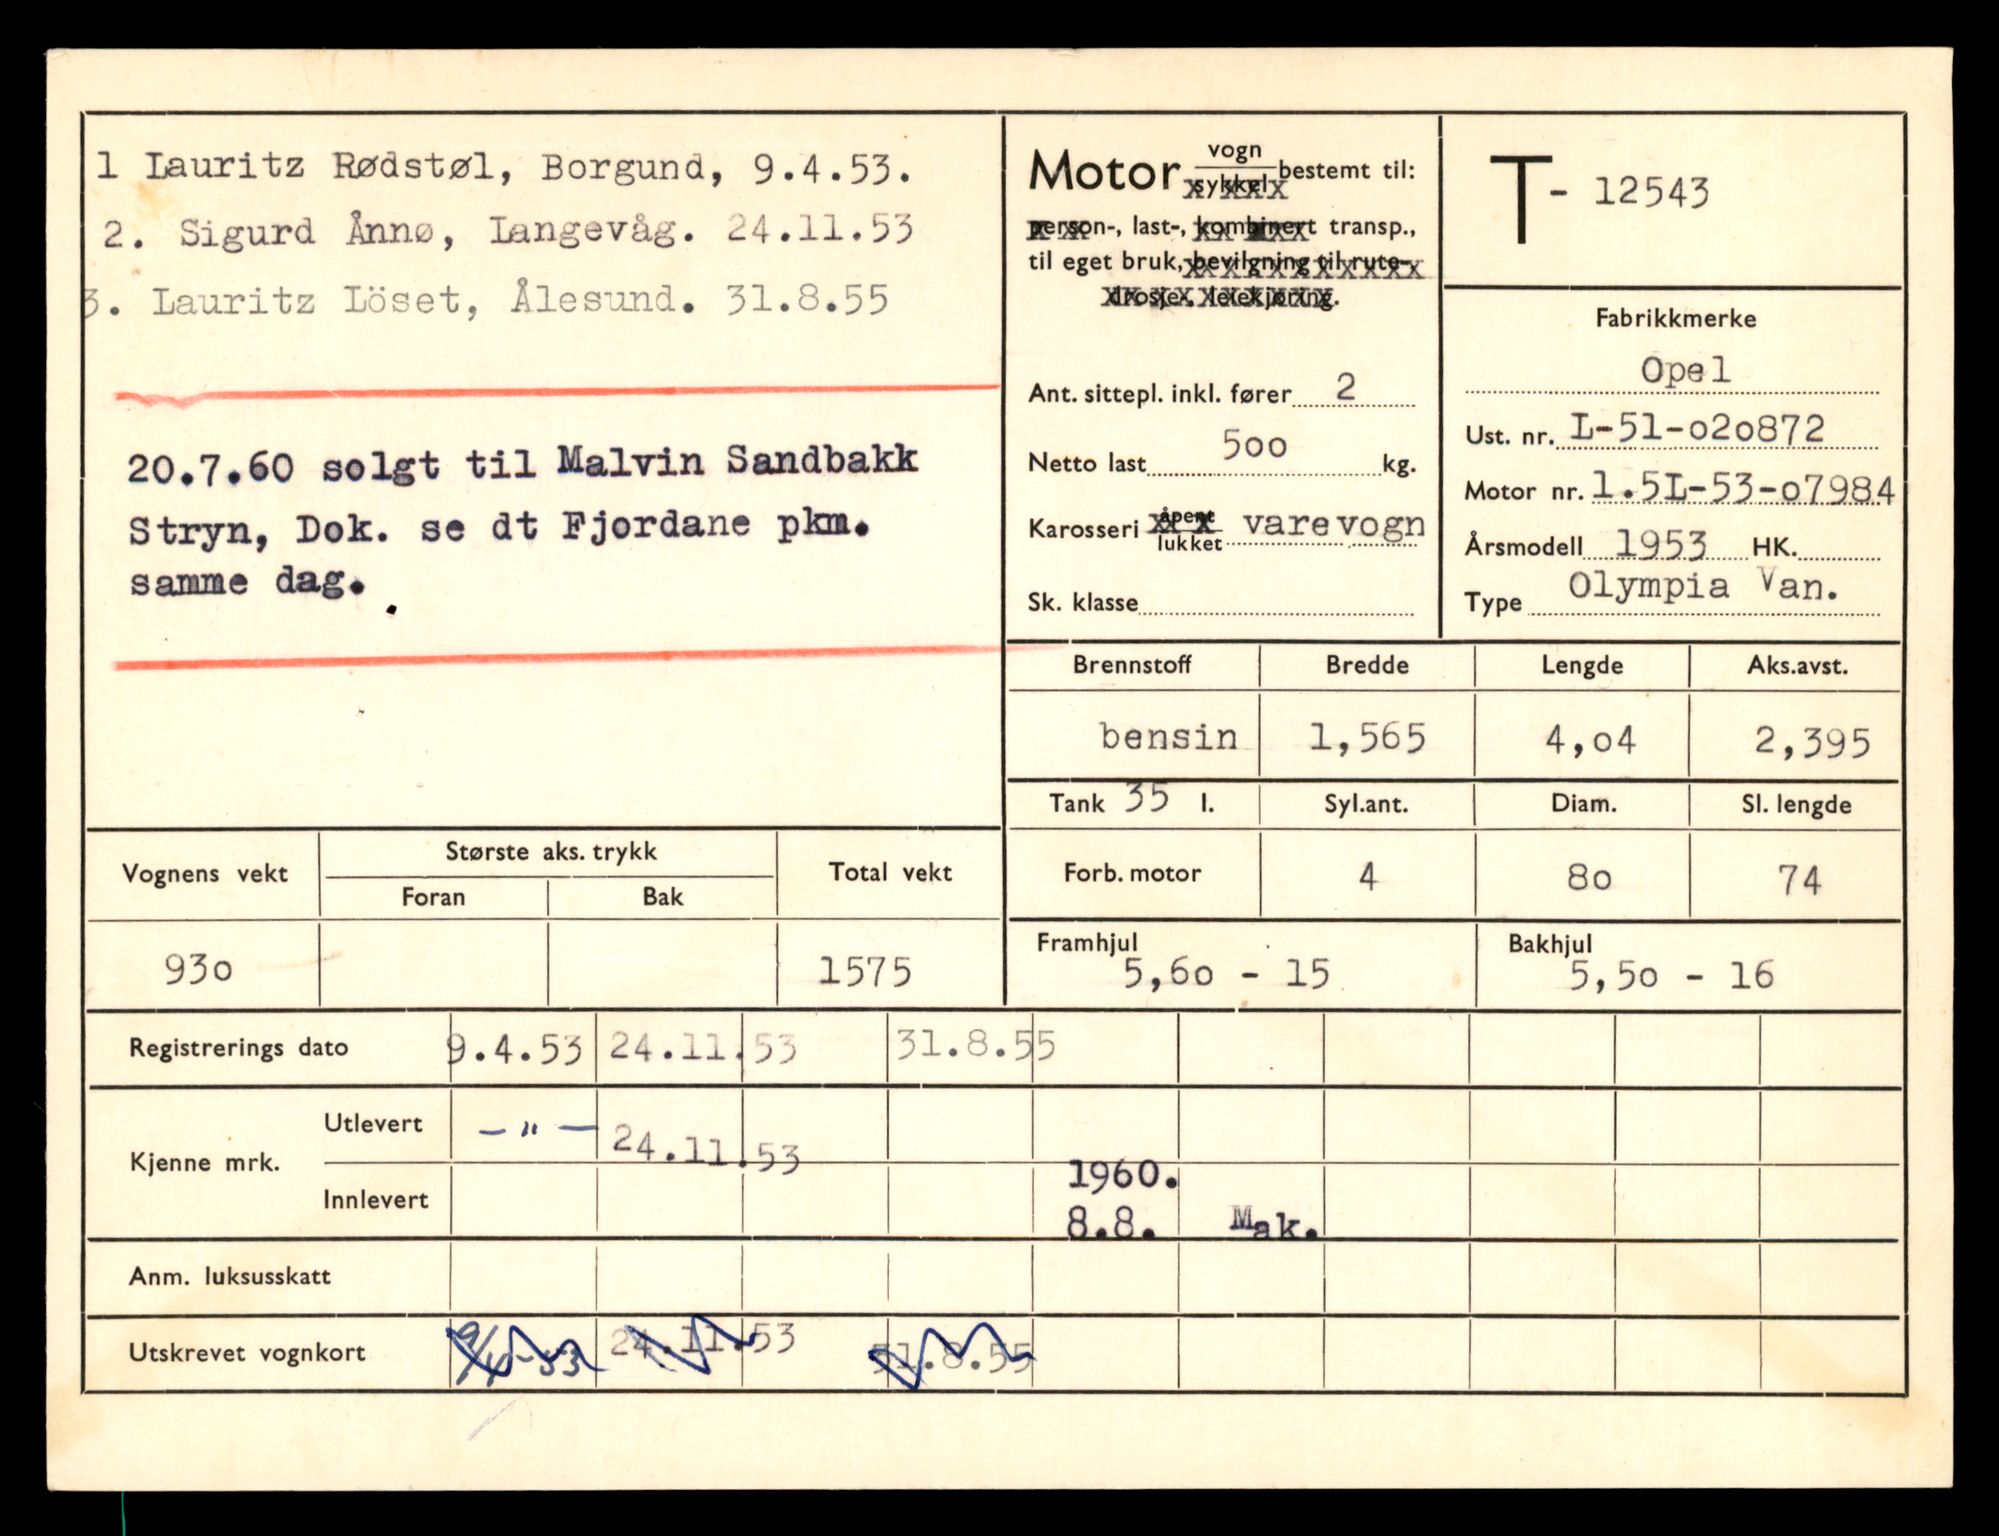 1 Lauritz Rødstøl, Borgund, 9.4.53.
2. Sigurd Ånnø, Langevåg. 24.11.53
3. Lauritz Löset, Ålesund. 31.8.55
20.7.60 solgt til Malvin Sandbakk
Stryn, Dok. se dt Fjordane pkm.
samme dag.
Motor vogn sykkel bestemt til:
person-, last-, kombinert transp.,
til eget bruk, bevilgning til rute-
drosje-, leiekjøring.
Ant. sittepl. inkl. fører 2
Netto last 500 kg.
Karosseri åpent lukket varevogn
Sk. klasse
T- 12543
Fabrikkmerke
Opel
Ust. nr. L-51-020872
Motor nr. 1.5L-53-07984
Årsmodell 1953 HK.
Type Olympia Van.
Brennstoff Bredde Lengde Aks.avst.
bensin 1,565 4,04 2,395
Tank 35 l. Syl.ant. Diam. Sl. lengde
Forb. motor 4 80 74
Framhjul 5,60 - 15
Bakhjul 5,50 - 16
Vognens vekt Største aks. trykk Total vekt
Foran Bak
930 1575
Registrerings dato 9.4.53 24.11.53 31.8.55
Kjenne mrk.
Utlevert -"- 24.11.53
Innlevert 1960.
8.8. Mak.
Anm. luksusskatt
Utskrevet vognkort 9/4-53 24.11.53 31.8.55